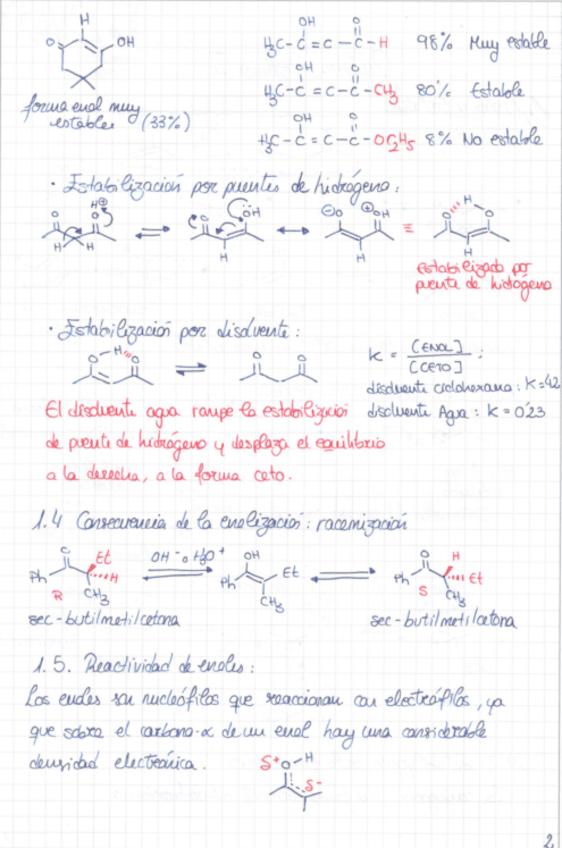 H
O
OH
forma enol muy
estables (33%)
OH O
H₃C-C=C-C-H 98% Muy estable
OH O
H₃C-C=C-C-CH₃ 80% Estable
OH O
H₃C-C=C-C-OC₂H₅ 8% No estable
· Estabilización por puentes de hidrógeno:
H⊕
O O
H H
O OH
H
⊖O ⊕OH
H
≡
O H O
H
estabilizado por
puente de hidrógeno
· Estabilización por disolvente:
O H O
O O
K = [ENOL] / [CETO] ;
disolvente ciclohexano: K=42
disolvente Agua: K=0'23
El disolvente agua rompe la estabilización
de puente de hidrógeno y desplaza el equilibrio
a la derecha, a la forma ceto.
1.4 Consecuencia de la enolización: racemización
O Et
Ph H
R CH₃
OH⁻ o H₃O⁺
OH
Ph Et
CH₃
O H
Ph Et
S CH₃
sec-butilmetilcetona
sec-butilmetilcetona
1.5. Reactividad de enoles:
Los enoles son nucleófilos que reaccionan con electrófilos, ya
que sobre el carbono-α de un enol hay una considerable
densidad electrónica.
δ⁺ O-H
δ-
2